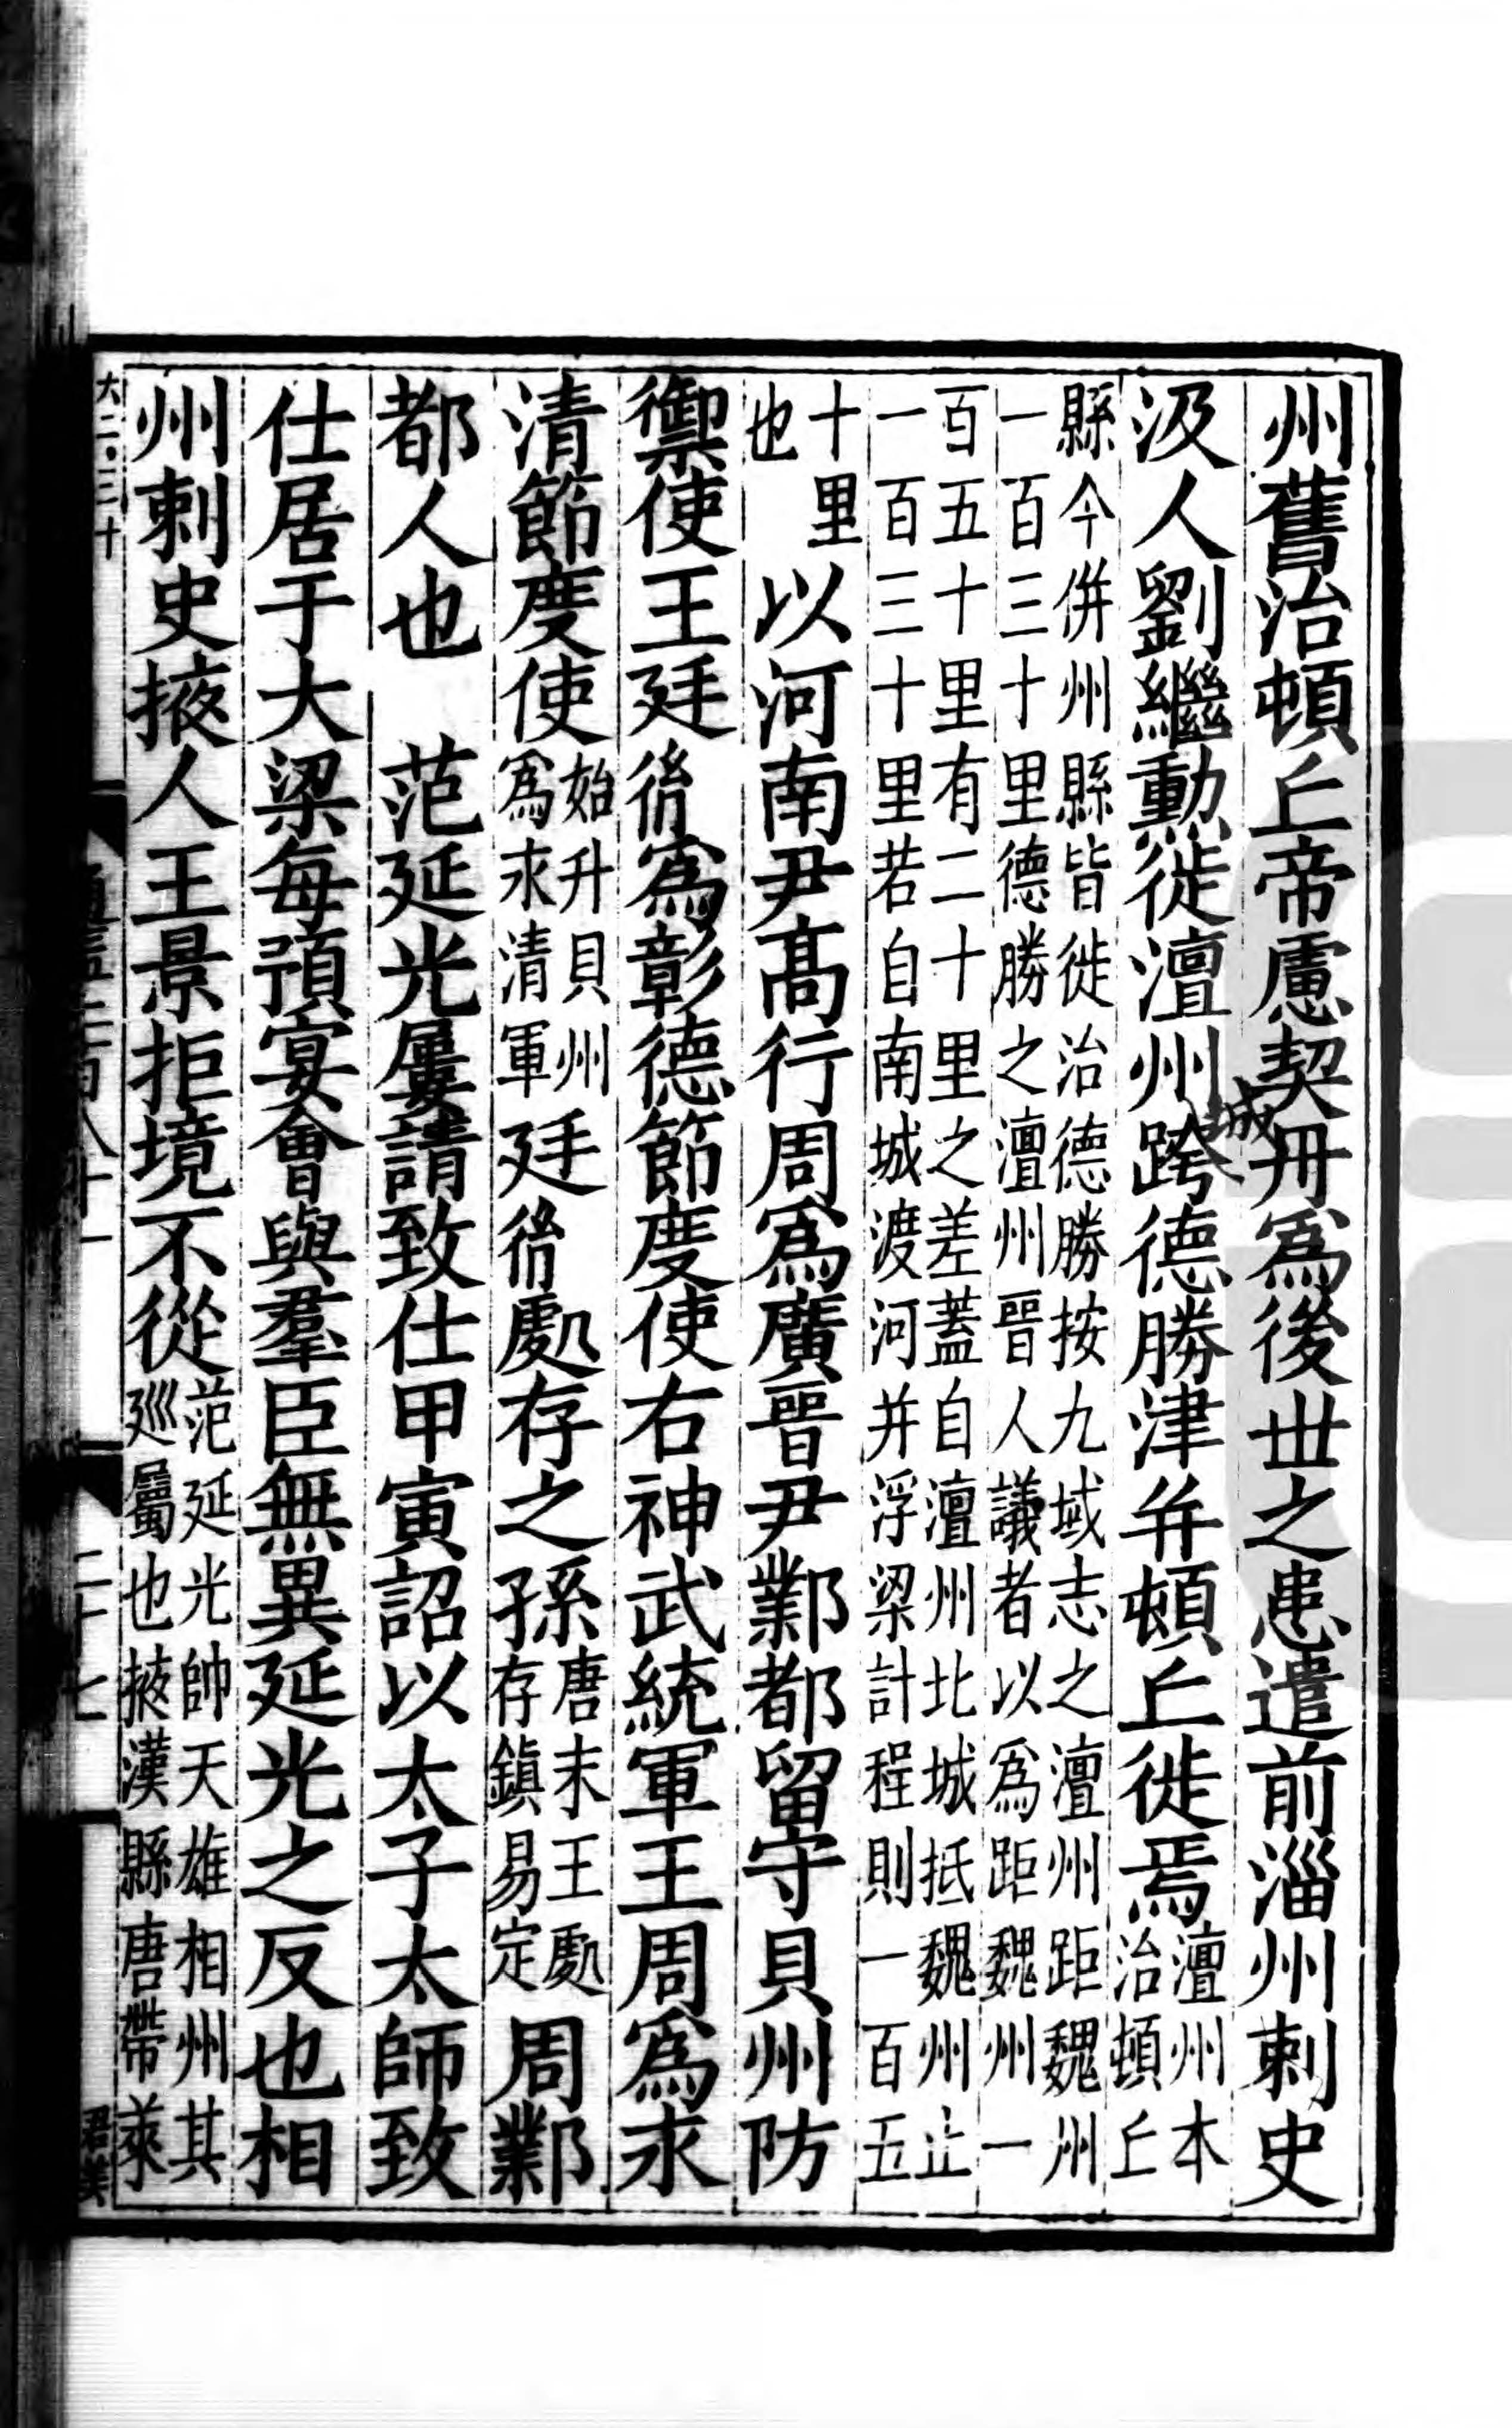 州舊治頓丘帝慮契丹爲後世之患遣前淄州刺史
汲人劉繼勳徙澶州跨德勝津并頓丘徙焉澶州本治頓丘
城
縣今併州縣皆徙治德勝按九域志之澶州距魏州一
一百三十里德勝之澶州晉人議者以爲距魏州一
百五十里有二十里之差蓋自澶州北城抵魏州止
一百三十里若自南城渡河并浮梁計程則一百五
十里也以河南尹高行周爲廣晉尹鄴都留守貝州防
禦使王廷胤爲彰德節度使右神武統軍王周爲永
清節度使始升貝州爲永清軍廷胤處存之孫唐末王處存鎮易定周鄴
都人也 范延光屢請致仕甲寅詔以太子太師致
仕居于大梁每預宴會與羣臣無異延光之反也相
州刺史掖人王景拒境不從范延光帥天雄相州其廵屬也掖漢縣唐帶萊
大二·三十
二十七